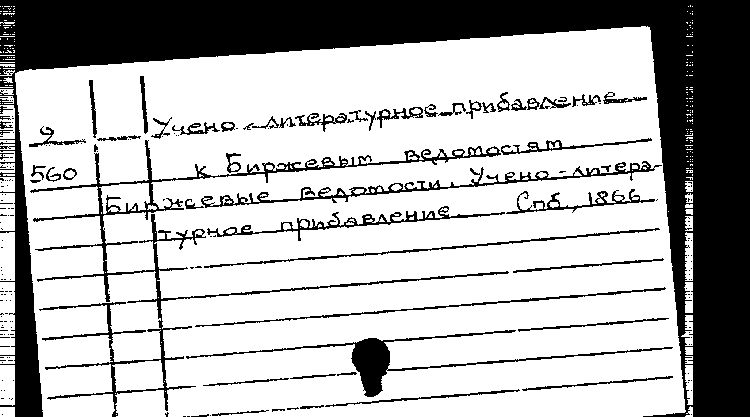 9 Учено-литературное прибавление
560 к Биржевым ведомостям
Биржевые ведомости. Учено-литера-
турное прибавление. Спб., 1866